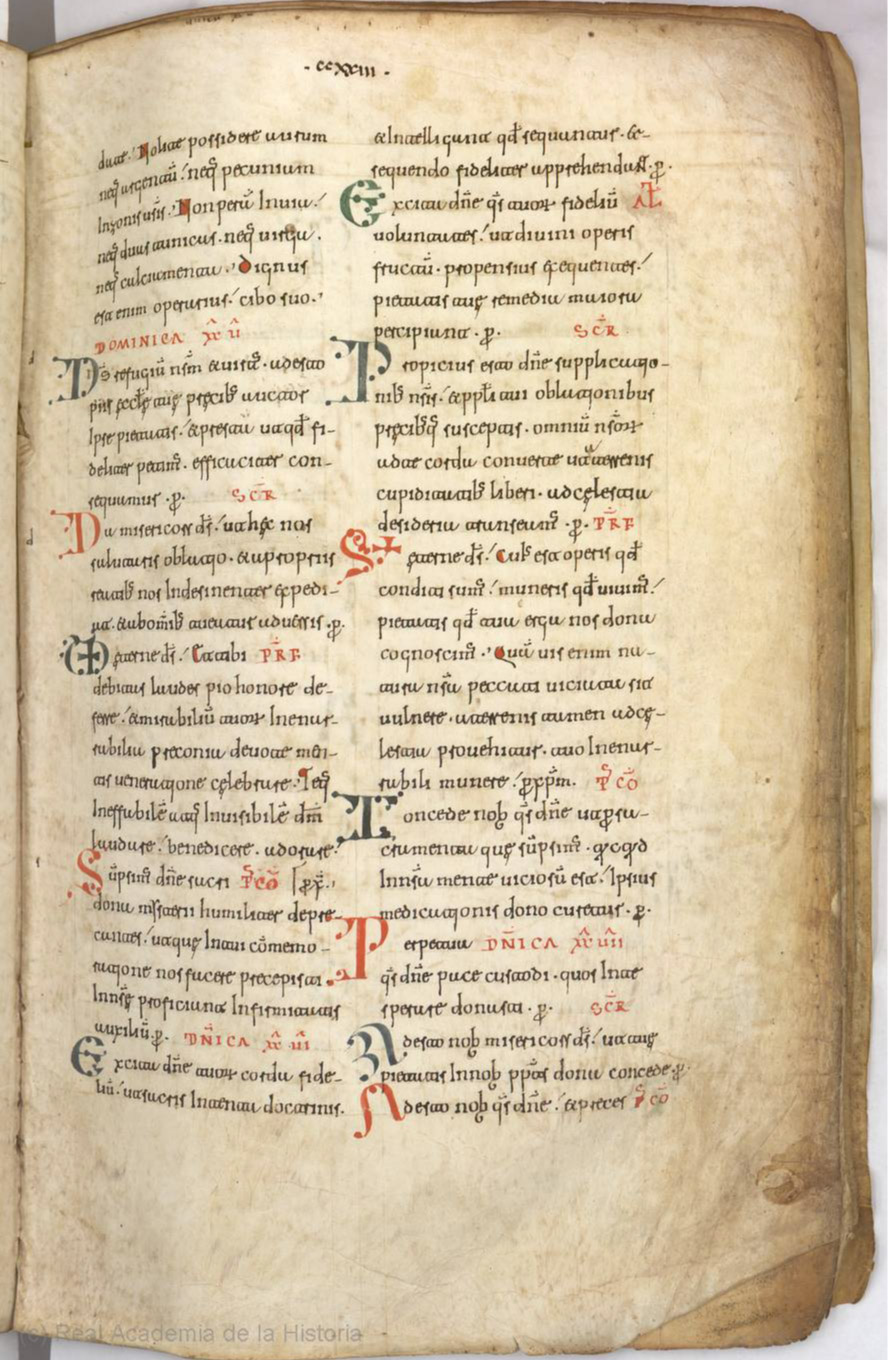 · ccxxiii ·
ducat. Nolite possidere aurum
neq̄ argentū. neq̄ pecuniam
In zonis ur̄is. Non perā In uia.
neq̄ duas tunicas. neq̄ uirga.
neq̄ calciamenta. Dignus
est enim operarius. cibo suo.
DOMINICA XX II
Ds̄ refugiū nsm̄ et uirtꝰ. adesto
piis ęcclę tuę pręcib̄ auctor
Ipse pietatis. et presta ut qd̄ fi-
deliter petim̄. efficaciter con-
sequamur. p. SCR̄
Da misericors ds̄. ut hęc nos
salutaris oblatio. et a propriis
reatib̄ nos Indesinenter expedi-
at. et ab om̄ib̄ tueatur aduersis. p.
ęterne ds̄. Et tibi PRF
debitas laudes pio honore de-
ferre. et mirabiliū tuor̄ Inenar-
rabilia preconia deuote men-
tis ueneratione cęlebrare. Teq̄
Ineffabilē atq̄ Inuisibilē dm̄
laudare. benedicere. adorare.
Sūpsim̄ dn̄e sacri P̄CŌ p̄p̄x̄.
dona misterii humiliter depre-
cantes. ut quę In tui cōmemo-
ratione nos facere precepisti.
In nrę proficiant Infirmitatis
auxiliū. p. DN̄ICA XX III
Excita dn̄e tuor̄ corda fide-
liū. ut sacris Intenta doctrinis.
et Intelligant qd̄ sequantur. et
sequendo fideliter apprehendant. p.
Excita dn̄e qs̄ tuor̄ fideliū AL̄
uoluntates. ut diuini operis
fructū. propensius exequentes.
pietatis tuę remedia maiora
percipiant. p. SCR̄
Propicius esto dn̄e supplicatio-
nib̄ nr̄is. et ppl̄i tui oblationibus
pręcibq̄ susceptis. omniū nrōr
ad te corda conuerte ut a terrenis
cupiditatib̄ liberi. ad cęlestia
desideria transeam̄. p. PRF
ęterne ds̄. Cuiꝰ est operis qd̄
conditi sum̄. muneris qd̄ uiuim̄.
pietatis qd̄ tua erga nos dona
cognoscim̄. Quāuis enim na-
tura nr̄a peccati uiciata sit
uulnere. a terrenis tamen ad cę-
lestia prouehitur. tuo Inenar-
rabili munere. p̄x̄p̄m. P̄CŌ
Concede nob̄ qs̄ dn̄e ut p̄ sa-
cramenta quę sūpsim̄. qcqd
In nr̄a mente uiciosū est. Ipsius
medicationis dono curetur. p.
Perpetua DN̄ICA XX IIII
qs̄ dn̄e pace custodi. quos In te
sperare donasti. p. SCR̄
Adesto nob̄ misericors ds̄. ut tuę
pietatis In nob̄ pptis dona concede. p.
Adesto nob̄ qs̄ dn̄e. et preces P̄CŌ
(c) Real Academia de la Historia